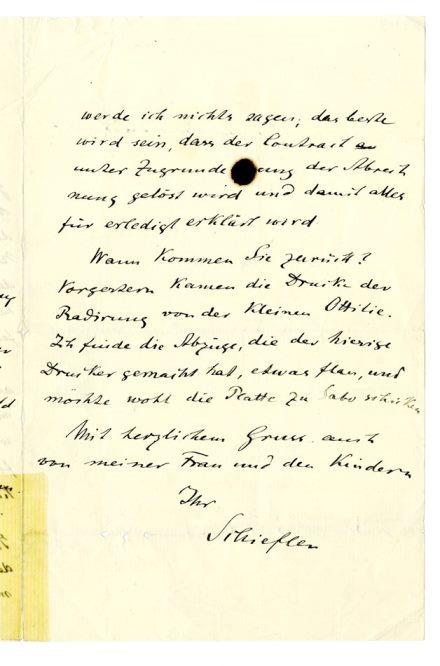 werde ich nichts sagen; das beste
wird sein, dass der Contract
unter Zugrunde ung der Abrech
nung gelöst wird und damit alles
für erledigt erklärt wird
Wann kommen Sie zurück?
Vorgestern kamen die Drucke der
Radirung von der kleinen Ottilie.
Ich finde die Abzüge, die der hiesige
Drucker gemacht hat, etwas flau, und
möchte wohl die Platte zu Sabo schicken
Mit herzlichem Gruss auch
von meiner Frau und den Kindern
Ihr
Schiefler